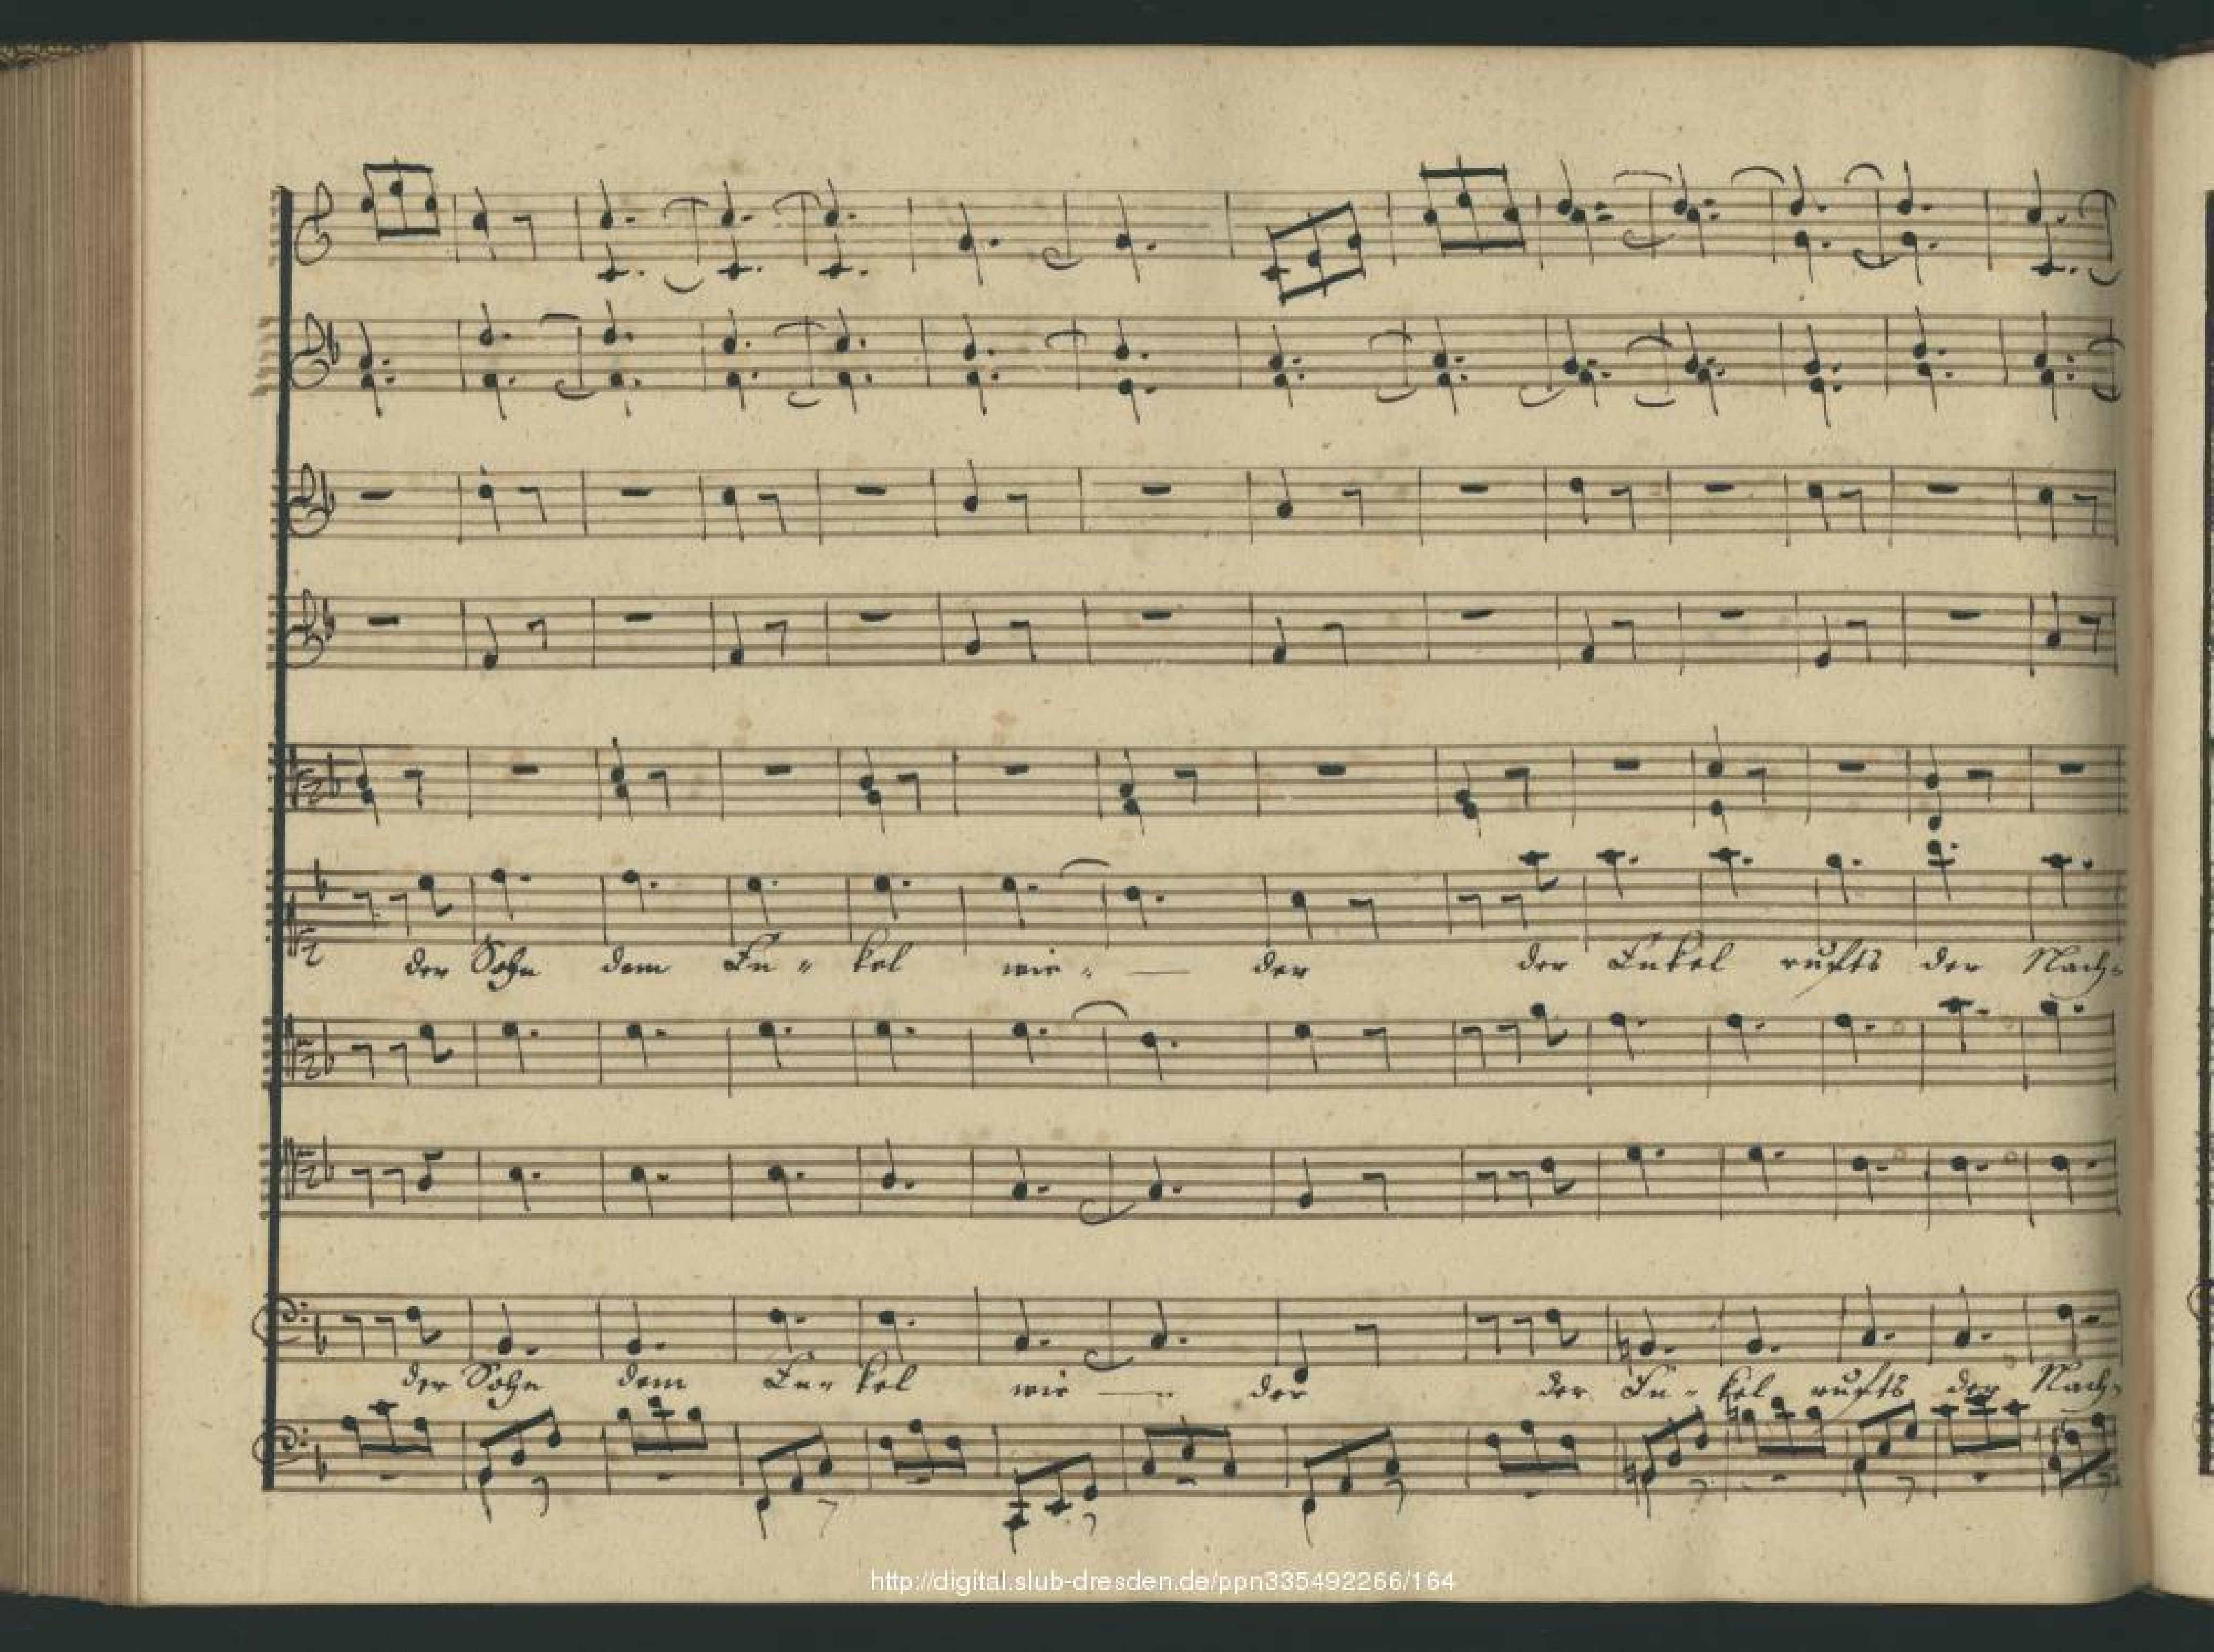 der Sohn dem En- kel wie- — der der Enkel rufts der Nach-
der Sohn dem En- kel wie — der der En- kel rufts der Nach-
http://digital.slub-dresden.de/ppn335492266/164